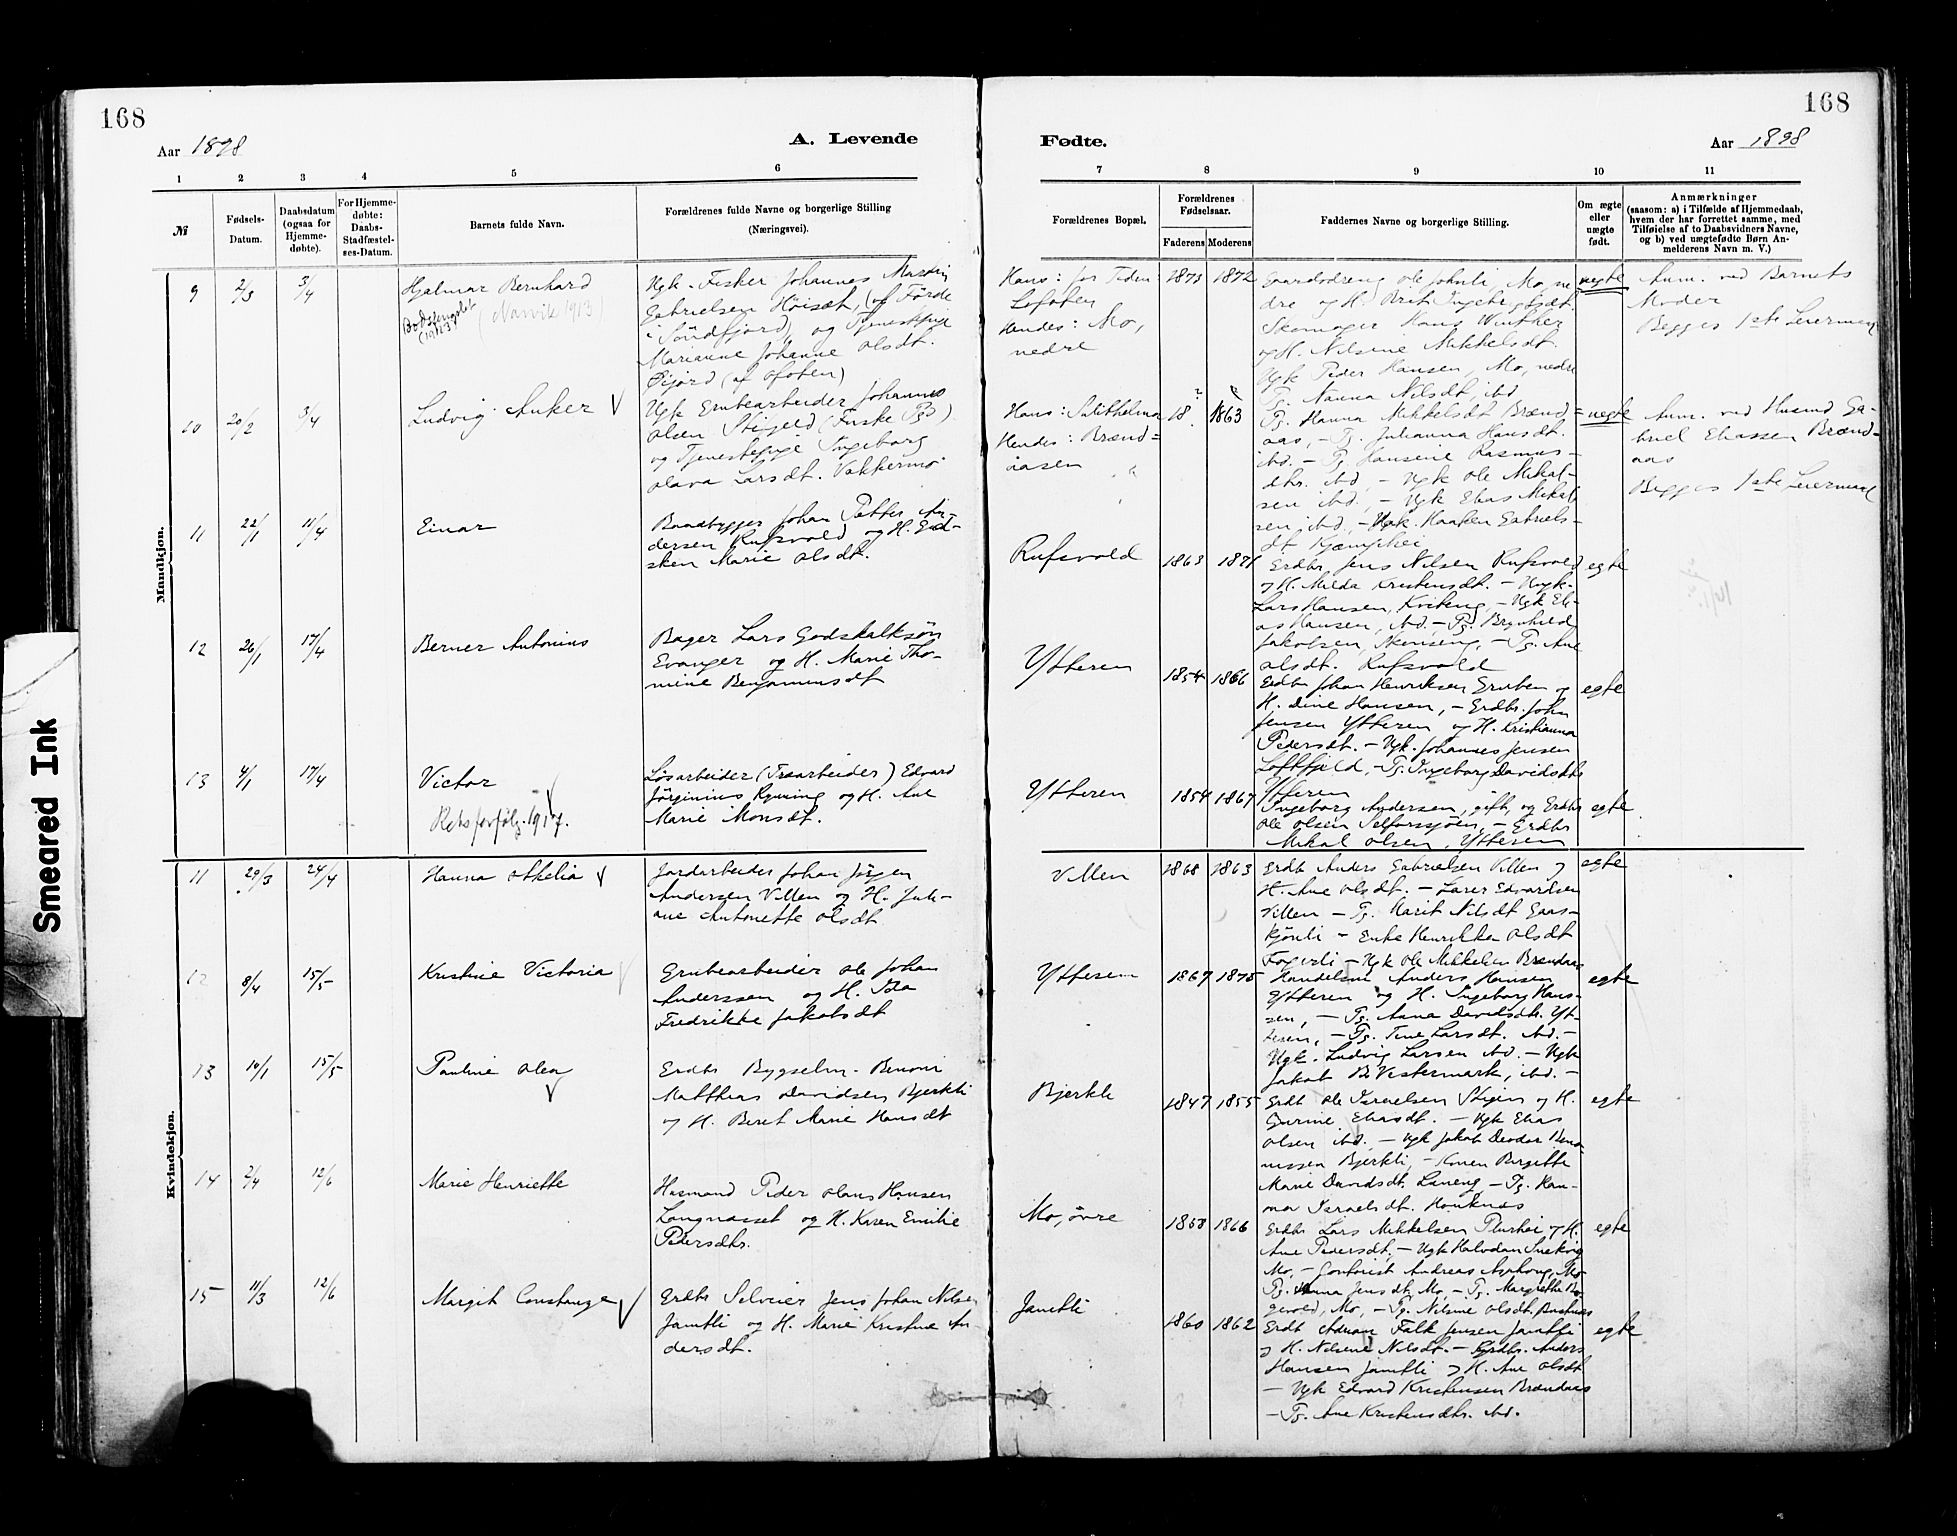 168
168
Aar 1898
A. Levende
Fødte.
Aar 1898
1 2 3 4 5 6
7 8 9 10 11
№
Fødsels-
Datum.
Daabsdatum
(ogsaa for
Hjemme-
døbte).
For Hjemme-
døbte:
Daabs-
Stadfæstel-
ses-Datum.
Barnets fulde Navn.
Forældrenes fulde Navne og borgerlige Stilling
(Næringsvei).
Forældrenes Bopæl.
Forældrenes
Fødselsaar.
Faderens Moderens
Faddernes Navne og borgerlige Stilling.
Om ægte
eller
uægte
født.
Anmærkninger
(saasom: a) i Tilfælde af Hjemmedaab,
hvem der har forrettet samme, med
Tilføielse af to Daabsvidners Navne,
og b) ved uægtefødte Børn An-
melderens Navn m. V.)
Mandkjøn.
9 2/3 3/4
Hjalmar Bernhard
(Narvik 1913)
Ugk. Fisker Johannes Martin
Gabrielsen Höisæt, (af Förde
i Söndfjord), og Tjenestepige
Marianne Johanne Olsdt.
(af Ofoten)
Hans: for Tiden
Lofoten
Hendes: Mo,
nedre
1873 1872
Gaardsdreng Ole Johnli, Mo, ne-
dre og H. Brit Ingebrigtsdt.
Skomager Hans Winther
og H. Nilsine Mikkelsdt.
Ugk Peder Hansen, Mo, nedre
Pg. Nanna Nilsdt, ibd
uegte
Anm. ved Barnets
Moder
Begges 1ste Leiermaal
10 20/2 3/4
Ludvig Anker
Ugk Grubearbeider Johannes
Olsen (Fuske Pgd)
og Tjenestepige Ingeborg
Olava Larsdt. Vakkermo
Hans: Sulithelma
Hendes: Brænd=
aasen
18 ? 1863
Pg. Hanna Mikkelsdt Brænd=
aas, - Pg. Julianna Hansdt.
ibd. - Pg Hansine Rasmus-
dtr. ibd, - Ugk Ole Mikal-
sen ibd, - Ugk Elias Mikal
sen, ibd, - Ugk. Haaken Gabriels-
dt
uegte
Anm. ved Husmd Ga-
briel Eliassen Brænd-
aas
Begges 1ste Leiermaal
11 22/1 11/4
Einar
Baadbygger Johan Petter An-
dersen Rufsvold og H.
Marie Olsdt.
Rufsvold
1863 1871
Grdbr Jens Nilsen Rufsvold
og H. Milda Kristensdt. - Ugk.
Lars Hansen, - Ugk Eli-
as Hansen, ibd. - Pg. Brynhild
Jakobsen, Skonseng, - Pg. Ane
Olsdt. Rufsvold
egte
12 26/1 17/4
Berner Antonius
Bager Lars Godskalksön
Evanger og H. Marie Tho-
mine Benjaminsdt
Ytteren
1854 1866
Grdbr Johan Henriksen Gruben og
H. Dine Hansen, - Grdbr. John
Jensen Ytteren og H. Kristianna
Pedersdt. - Ugk. Johannes Jensen
Loftfjeld, - Pg. Ingeborg Davidsdtr
Ytteren
egte
13 4/1 17/4
Victor
Retsforfölg. 1917.
Lösarbeider (Træarbeider) Edvard
Jörginius og H. Ane
Marie Monsdt.
Ytteren
1854 1867
Ingeborg Andersen, gift, og Grdbr
Ole Olsen Selforssjöen, - Grdbr
Mikal Olsen, Ytteren
egte
Kvindekjøn.
11 29/3 24/4
Hanna Othelia
Jordarbeider Johan Jörgen
Andersen Villen og H. Juli-
ane Antonette Olsdt
Villen
1868 1863
Grdbr Anders Gabrielsen Villen og
H. Ane Olsdt. - Lærer Edvardsen
Villen - Pg. Marit Nilsdt Gaas-
kjönli - Enke Henrikka Olsdt
Fagerli - Ugk Ole Mikkelsen Brændaas
egte
12 8/4 15/5
Kristine Victoria
Grubearbeider Ole Johan
Anderssen og H. Ida
Fredrikke Jakobsdt
Ytteren
1867 1875
Handelsm Anders Hansen
Ytteren og H. Ingeborg Hans-
sen, - Pg. Anna Davidsdtr. Yt-
teren, - Pg. Tine Larsdt. ibd. -
Ugk. Ludvig Larsen ibd. - Ugk
Jakob B. Vestermark, ibd. -
egte
13 14/1 15/5
Pauline Olea
Grdbr Bygselm. Benoni
Matthias Davidsen Bjerkli
og H. Beret Marie Hansdt
Bjerkli
1847 1855
Grdbr Ole Israelsen Stien og H.
Gurine Eliasdt. - Ugk Elias
Olsen ibd. - Ugk Jakob Deodor Beno-
nissen Bjerkli, - Konen Birgitte
Marie Davidsdt, - Pg. Han-
na Israelsdt. Hauknes
egte
14 2/4 12/6
Marie Henriette
Husmand Peder Olaus Hansen
Langnæsset og H. Karen Emilie
Pedersdtr.
Mo, övre
1858 1866
Grdbr Lars Mikkelsen og H.
Ane Pedersdt, - Ugk Halvdan
Mo, - Andreas Mo
Pg. Anna Jensdt, Mo, - Pg. Margrethe
Mo, - Pg. Nilsine Olsdt,
egte
15 11/3 12/6
Margit Constanze
Grdbr Selveier Jens Johan Nilsen
Jamtli og H. Marie Kristine An
dersdt.
Jamtli
1860 1862
Grdbr Adrian Falk Jensen Jamtli
og H. Nilsine Nilsdt. - Grdbr. Anders
Hansen Jamtli og H. Ane Olsdt
- Ugk Edvard Kristensen Brændaas
- Pg. Ane Kristensdtr. ibd.
egte
Smeared Ink